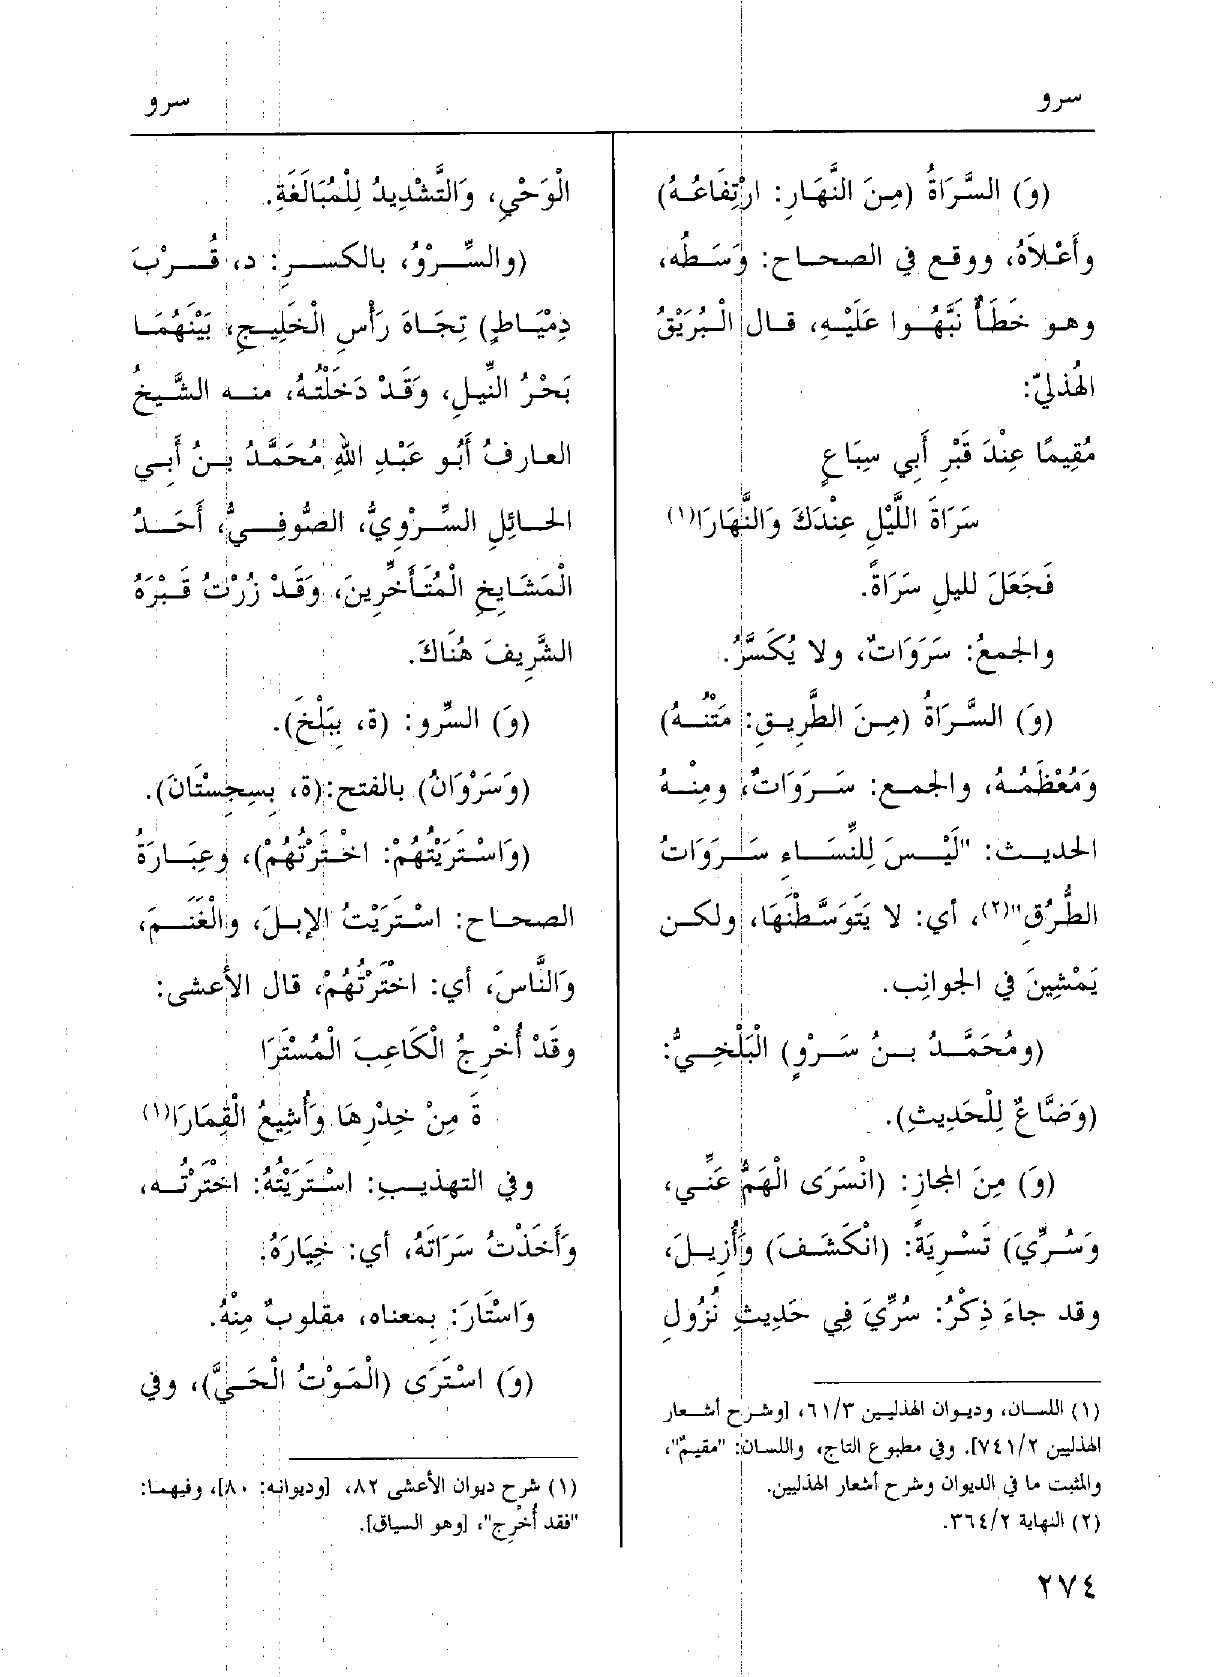 سرو
سرو
(وَ) السَّرَاةُ (مِنَ النَّهَارِ: ارْتِفَاعُـهُ)
وأَعْلاَهُ، ووقـع في الصحـاح: وَسَـطُه،
وهـو خَطَأٌ نَبَّهُـوا عَلَيْـهِ، قـال الْـبُرَيْقُ
الهُذليّ:
مُقِيمًا عِنْدَ قَبْرِ أَبي سِبَاعٍ
سَرَاةَ اللَّيْلِ عِنْدَكَ وَالنَّهَارَا(١)
فَجَعَلَ لليلِ سَرَاةً.
والجمعُ: سَرَوَاتٌ، ولا يُكَسَّرُ.
(وَ) السَّـرَاةُ (مِـنَ الطَّرِيـقِ: مَتْنُـهُ)
وَمُعْظَمُـهُ، والجمـع: سَـرَوَاتٌ، ومِنْـهُ
الحديـث: "لَيْـسَ لِلنِّسَـاءِ سَـرَوَاتُ
الطُّرُقِ"(٢)، أي: لا يَتَوَسَّطْنَهَا، ولكـن
يَمْشِينَ في الجوانِب.
(ومُحَمَّـدُ بـنُ سَـرْوٍ) الْبَلْخِـيُّ:
(وَضَّاعٌ لِلْحَدِيثِ).
(وَ) مِنَ المجاز: (انْسَرَى الْهَمُّ عَنِّي،
وَسُـرِّيَ) تَسْـرِيَةً: (انْكَشَـفَ) وأُزِيـلَ،
وقد جاءَ ذِكْرُ: سُرِّيَ فِي حَدِيثِ نُزُولِ
(١) اللسان، وديـوان الهذليـين ٦١/٣، [وشرح أشـعار
الهذليين ٧٤١/٢]. وفي مطبوع التاج، واللسان: "مقيمٌ"،
والمثبت ما في الديوان وشرح أشعار الهذليين.
(٢) النهاية ٣٦٤/٢.
٢٧٤
الْوَحْيِ، وَالتَّشْدِيدُ لِلْمُبَالَغَةِ.
(والسِّـرْوُ، بالكسـر: د، قُـرْبَ
دِمْيَـاطٍ) تِجَاهَ رَأْسِ الْخَلِيـجِ، بَيْنَهُمَـا
بَحْرُ النِّيلِ، وَقَدْ دَخَلْتُهُ، منـه الشَّـيخُ
العارفُ أَبُو عَبْدِ اللهِ مُحَمَّدُ بـنُ أَبـي
الحـائِلِ السِّـرْوِيُّ، الصُّوفِـيُّ، أَحَـدُ
الْمَشَايِخِ الْمُتَأَخِّرِينَ، وَقَدْ زُرْتُ قَبْرَهُ
الشَّرِيفَ هُنَاكَ.
(وَ) السِّرو: (ة، بِبَلْخَ).
(وَسَرْوَانُ) بالفتح: (ة، بِسِجِسْتَانَ).
(وَاسْـتَرَيْتُهُمْ: اخْـتَرْتُهُمْ)، وعِبَـارَةُ
الصحاح: اسْتَرَيْتُ الإبلَ، والْغَنَـمَ،
وَالنَّاسَ، أي: اخْتَرْتُهُمْ، قال الأعشى:
وقَدْ أُخْرِجُ الْكَاعِبَ الْمُسْتَرَا
ةَ مِنْ خِدْرِهَا وَأُشِيعُ الْقِمَارَا(١)
وفي التهذيـب: اسْـتَرَيْتُهُ: اخْتَرْتُـه،
وَأَخَذْتُ سَرَاتَهُ، أي: خِيَارَهُ.
وَاسْتَارَ: بمعناه، مقلوبٌ مِنْهُ.
(وَ) اسْتَرَى (الْمَوْتُ الْحَـيَّ)، وفي
(١) شرح ديوان الأعشى ٨٢، [وديوانه: ٨٠]، وفيهمـا:
"فقد أُخْرِج"، [وهو السياق].